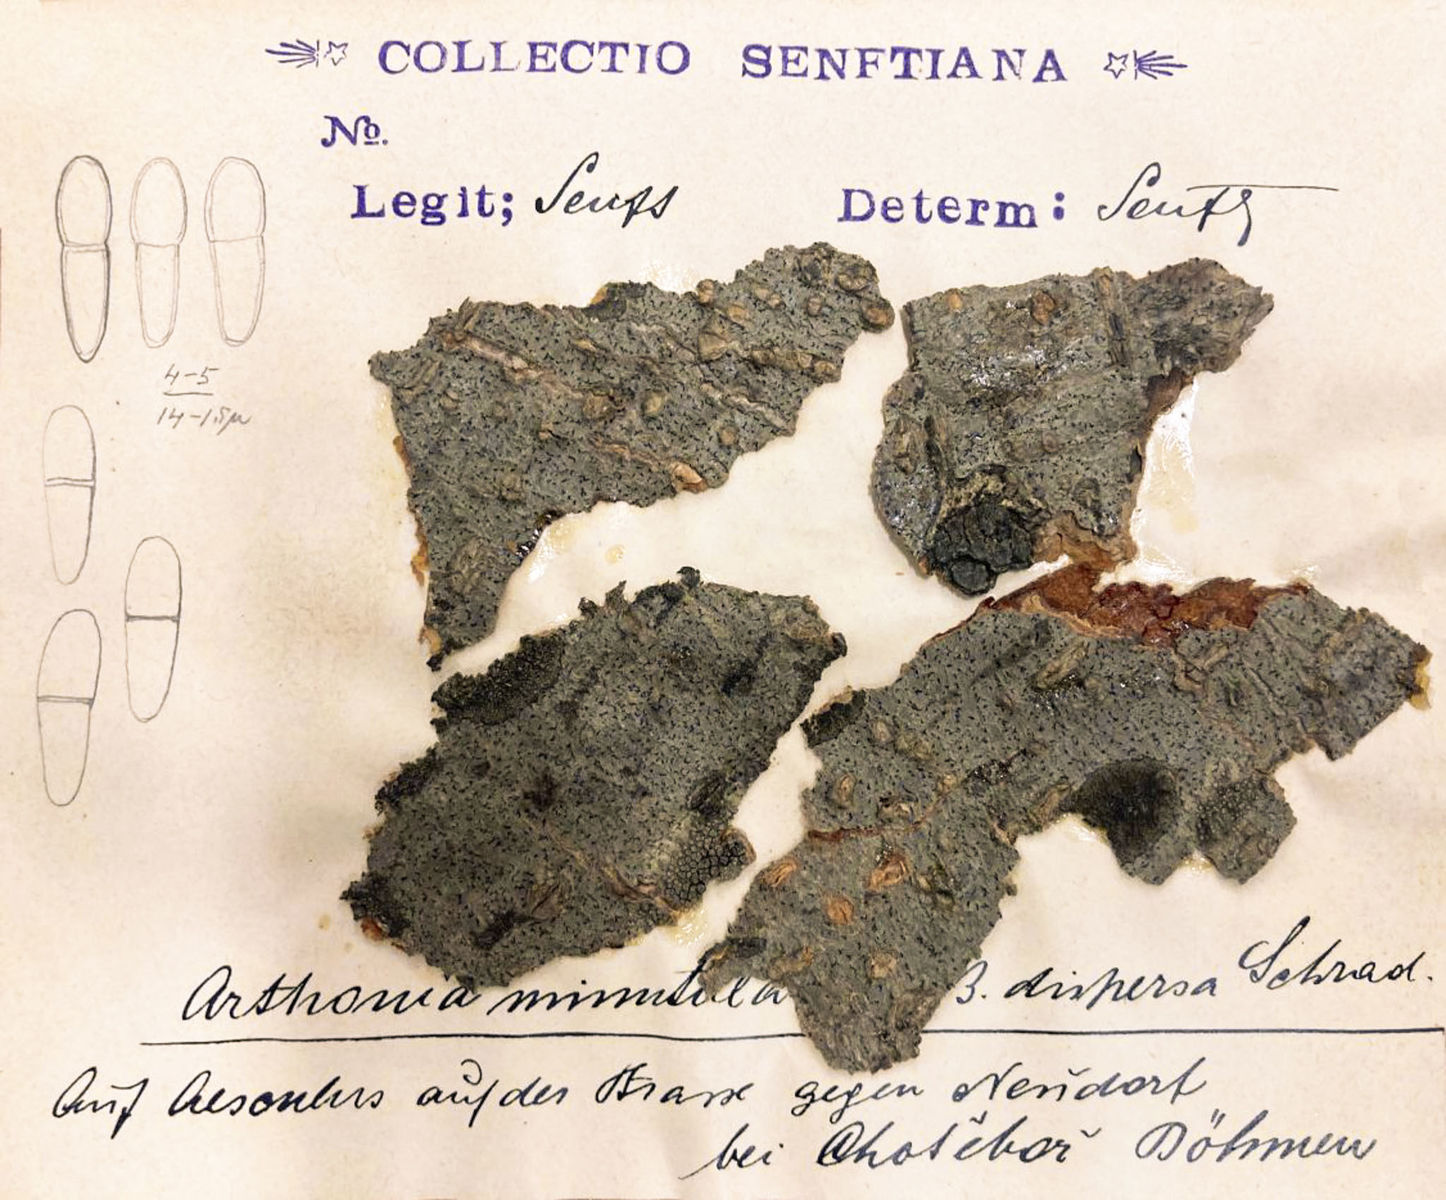 COLLECTIO SENFTIANA
No.
Legit; Senft
Determ: Senft
4-5
14-15µ
Arthonia minutula β. dispersa Schrad.
Auf Aesculus auf der Strasse gegen Neudorf
bei Chotěboř Böhmen